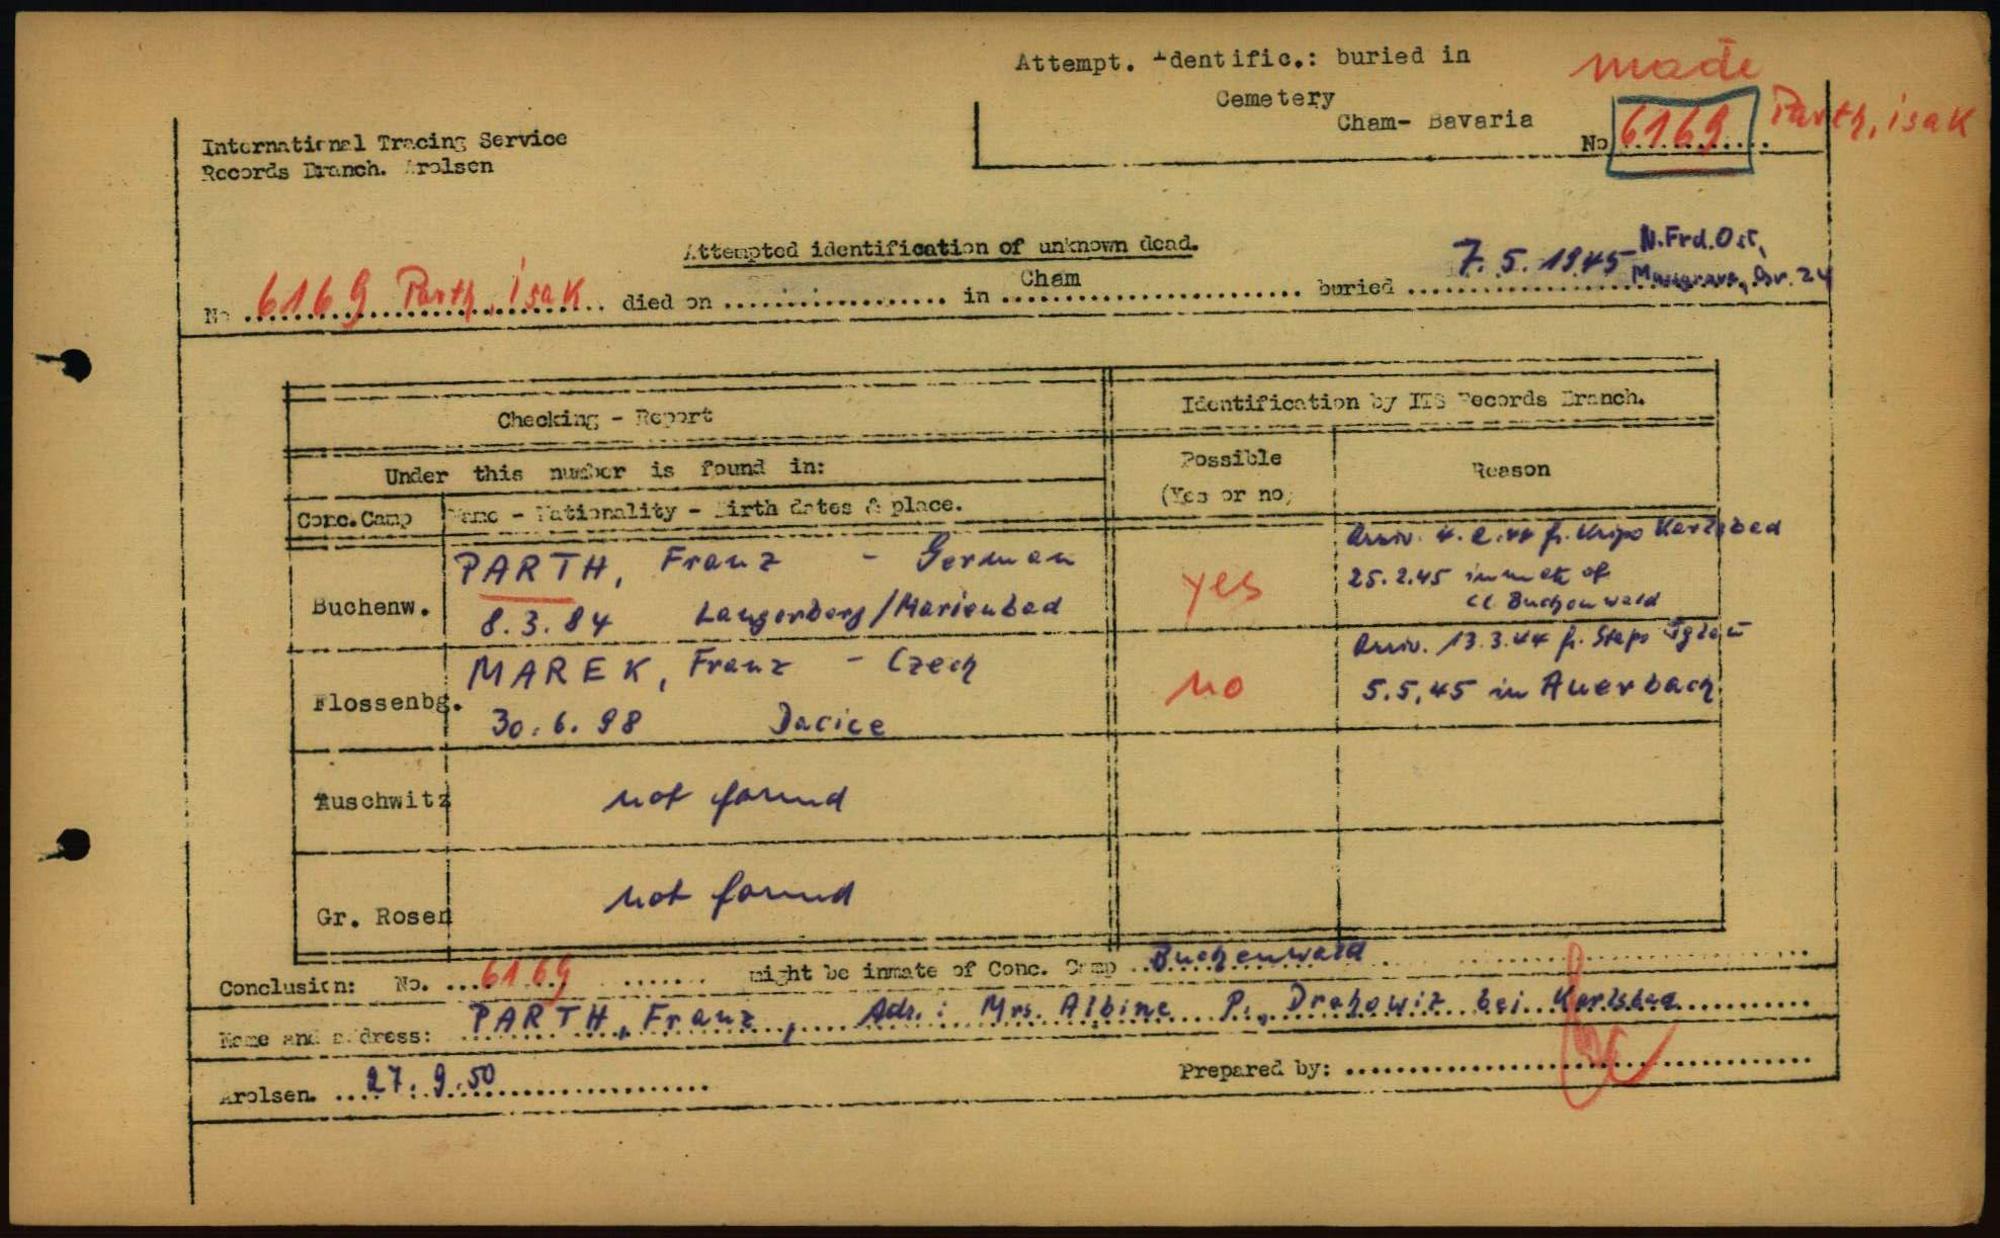 Attempt. Identific.: buried in
made
Cemetery
Cham- Bavaria
No 6169 Parth, isak
International Tracing Service
Records Branch. Arolsen
Attempted identification of unknown dead.
N.Frd.Ost,
No 6169 Parth, isak died on ........ in Cham buried 7.5.1945 Gr. 24
Checking - Report
Identification by ITS Records Branch.
Under this number is found in:
Possible
(Yes or no)
Reason
Conc.Camp
Name - Nationality - Birth dates & place.
Buchenw.
PARTH, Franz - German
8.3.84 Langerberg/Marienbad
yes
Arriv. 4.2.44 fr. Kripo Karlsbad
25.2.45 inmate of
CC Buchenwald
Flossenbg.
MAREK, Franz - Czech
30.6.98 Dacice
no
Arriv. 13.3.44 fr. Stapo Iglau
5.5.45 in Auerbach
Auschwitz
not found
Gr. Rosen
not found
Conclusion: No. 6169 might be inmate of Conc. Camp Buchenwald
Name and address: PARTH, Franz, Adr.: Mrs. Albine P., Drahowitz bei Karlsbad
Arolsen. 27.9.50
Prepared by: